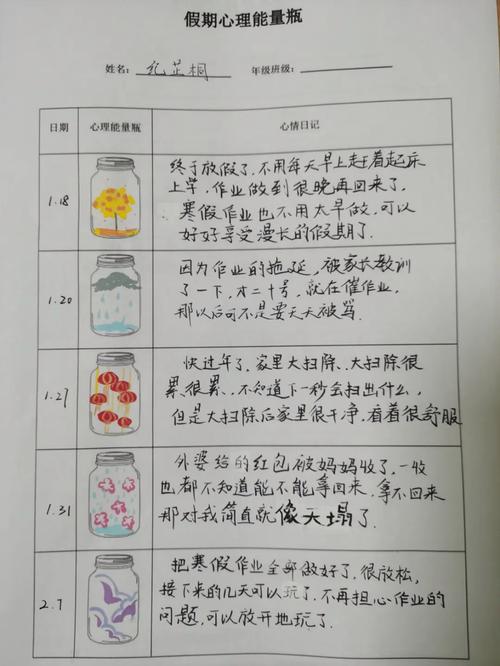 假期心理能量瓶
姓名: 纪芷桐 年级班级:
日期 心理能量瓶 心情日记
1.18
终于放假了,不用每天早上赶着起床
上学,作业做到很晚再回来了,
寒假作业也不用太早做,可以
好好享受漫长的假期了.
1.20
因为作业的拖延,被家长教训
了一下,才二十号,就在催作业,
那以后可不是要天天被骂.
1.27
快过年了,家里大扫除、大扫除很
累很累,不知道下一秒会扫出什么,
但是大扫除后家里很干净,看着很舒服
1.31
外婆给的红包被妈妈收了,一收
也都不知道能不能拿回来,拿不回来
那对我简直就像天塌了.
2.7
把寒假作业全部做好了,很放松,
接下来的几天可以玩了,不再担心作业的
问题,可以放开地玩了.